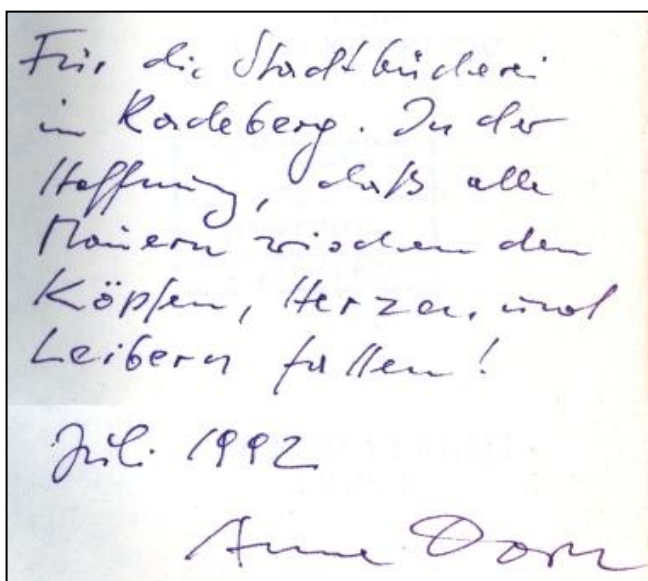 Für die Stadtbücherei
in Radeberg. In der
Hoffnung, daß alle
Mauern zwischen den
Köpfen, Herzen, und
Leibern fallen!
Juli 1992
Anne Dorn